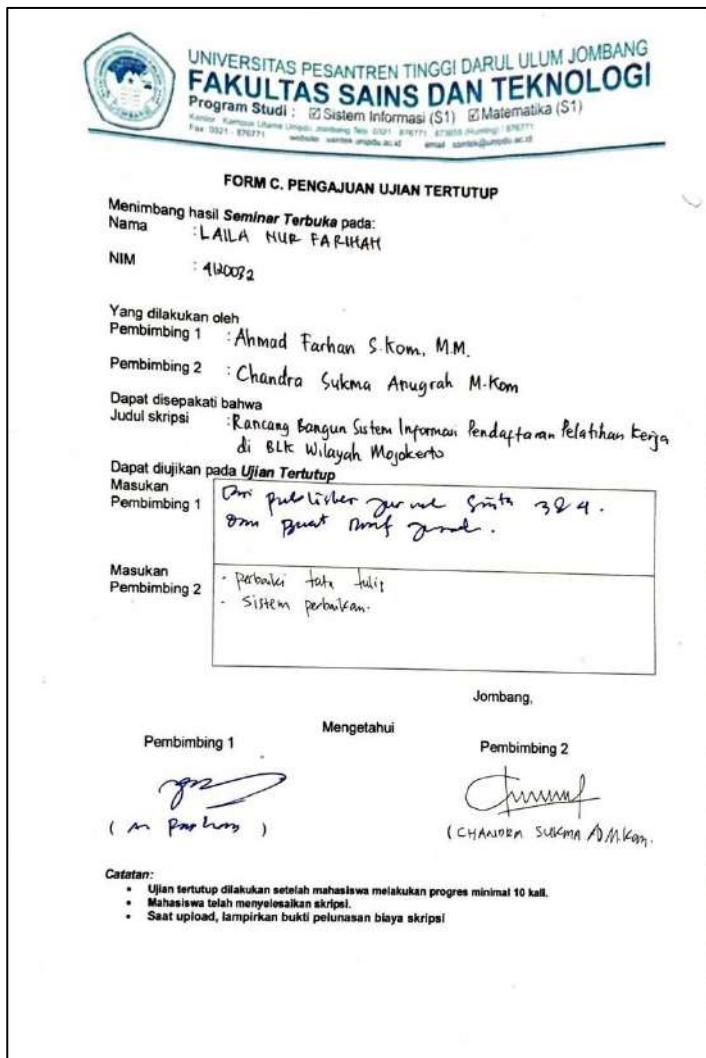 UNIVERSITAS PESANTREN TINGGI DARUL ULUM JOMBANG
FAKULTAS SAINS DAN TEKNOLOGI
Program Studi : ☑ Sistem Informasi (S1) ☑ Matematika (S1)
Kantor Kampus Utama Unipdu Jombang Telp 0321
Fax 0321 - 876771 website email
FORM C. PENGAJUAN UJIAN TERTUTUP
Menimbang hasil Seminar Terbuka pada:
Nama : LAILA NUR FARIHAH
NIM : 4120032
Yang dilakukan oleh
Pembimbing 1 : Ahmad Farhan S.Kom, M.M.
Pembimbing 2 : Chandra Sukma Anugrah M.Kom
Dapat disepakati bahwa
Judul skripsi : Rancang Bangun Sistem Informasi Pendaftaran Pelatihan Kerja
di BLK Wilayah Mojokerto
Dapat diujikan pada Ujian Tertutup
Masukan
Pembimbing 1
Cari publisher jurnal Sinta 3&4.
dan Buat jurnal.
Masukan
Pembimbing 2
- perbaiki tata tulis
- Sistem perbaikan.
Jombang,
Mengetahui
Pembimbing 1 Pembimbing 2
( A Farhan ) (CHANDRA SUKMA A M.Kom.
Catatan:
• Ujian tertutup dilakukan setelah mahasiswa melakukan progres minimal 10 kali.
• Mahasiswa telah menyelesaikan skripsi.
• Saat upload, lampirkan bukti pelunasan biaya skripsi